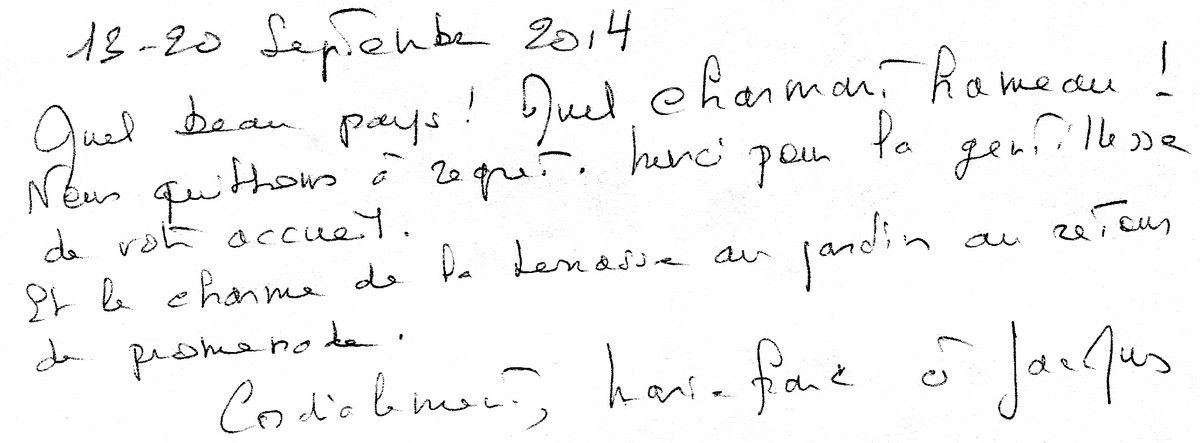 13-20 Septembre 2014
Quel beau pays! Quel charmant hameau!
Nous quittons à regret. Merci pour la gentillesse
de votre accueil.
Et le charme de la terrasse au jardin au retour
de promenade.
Cordialement, Marie-France à Jacques